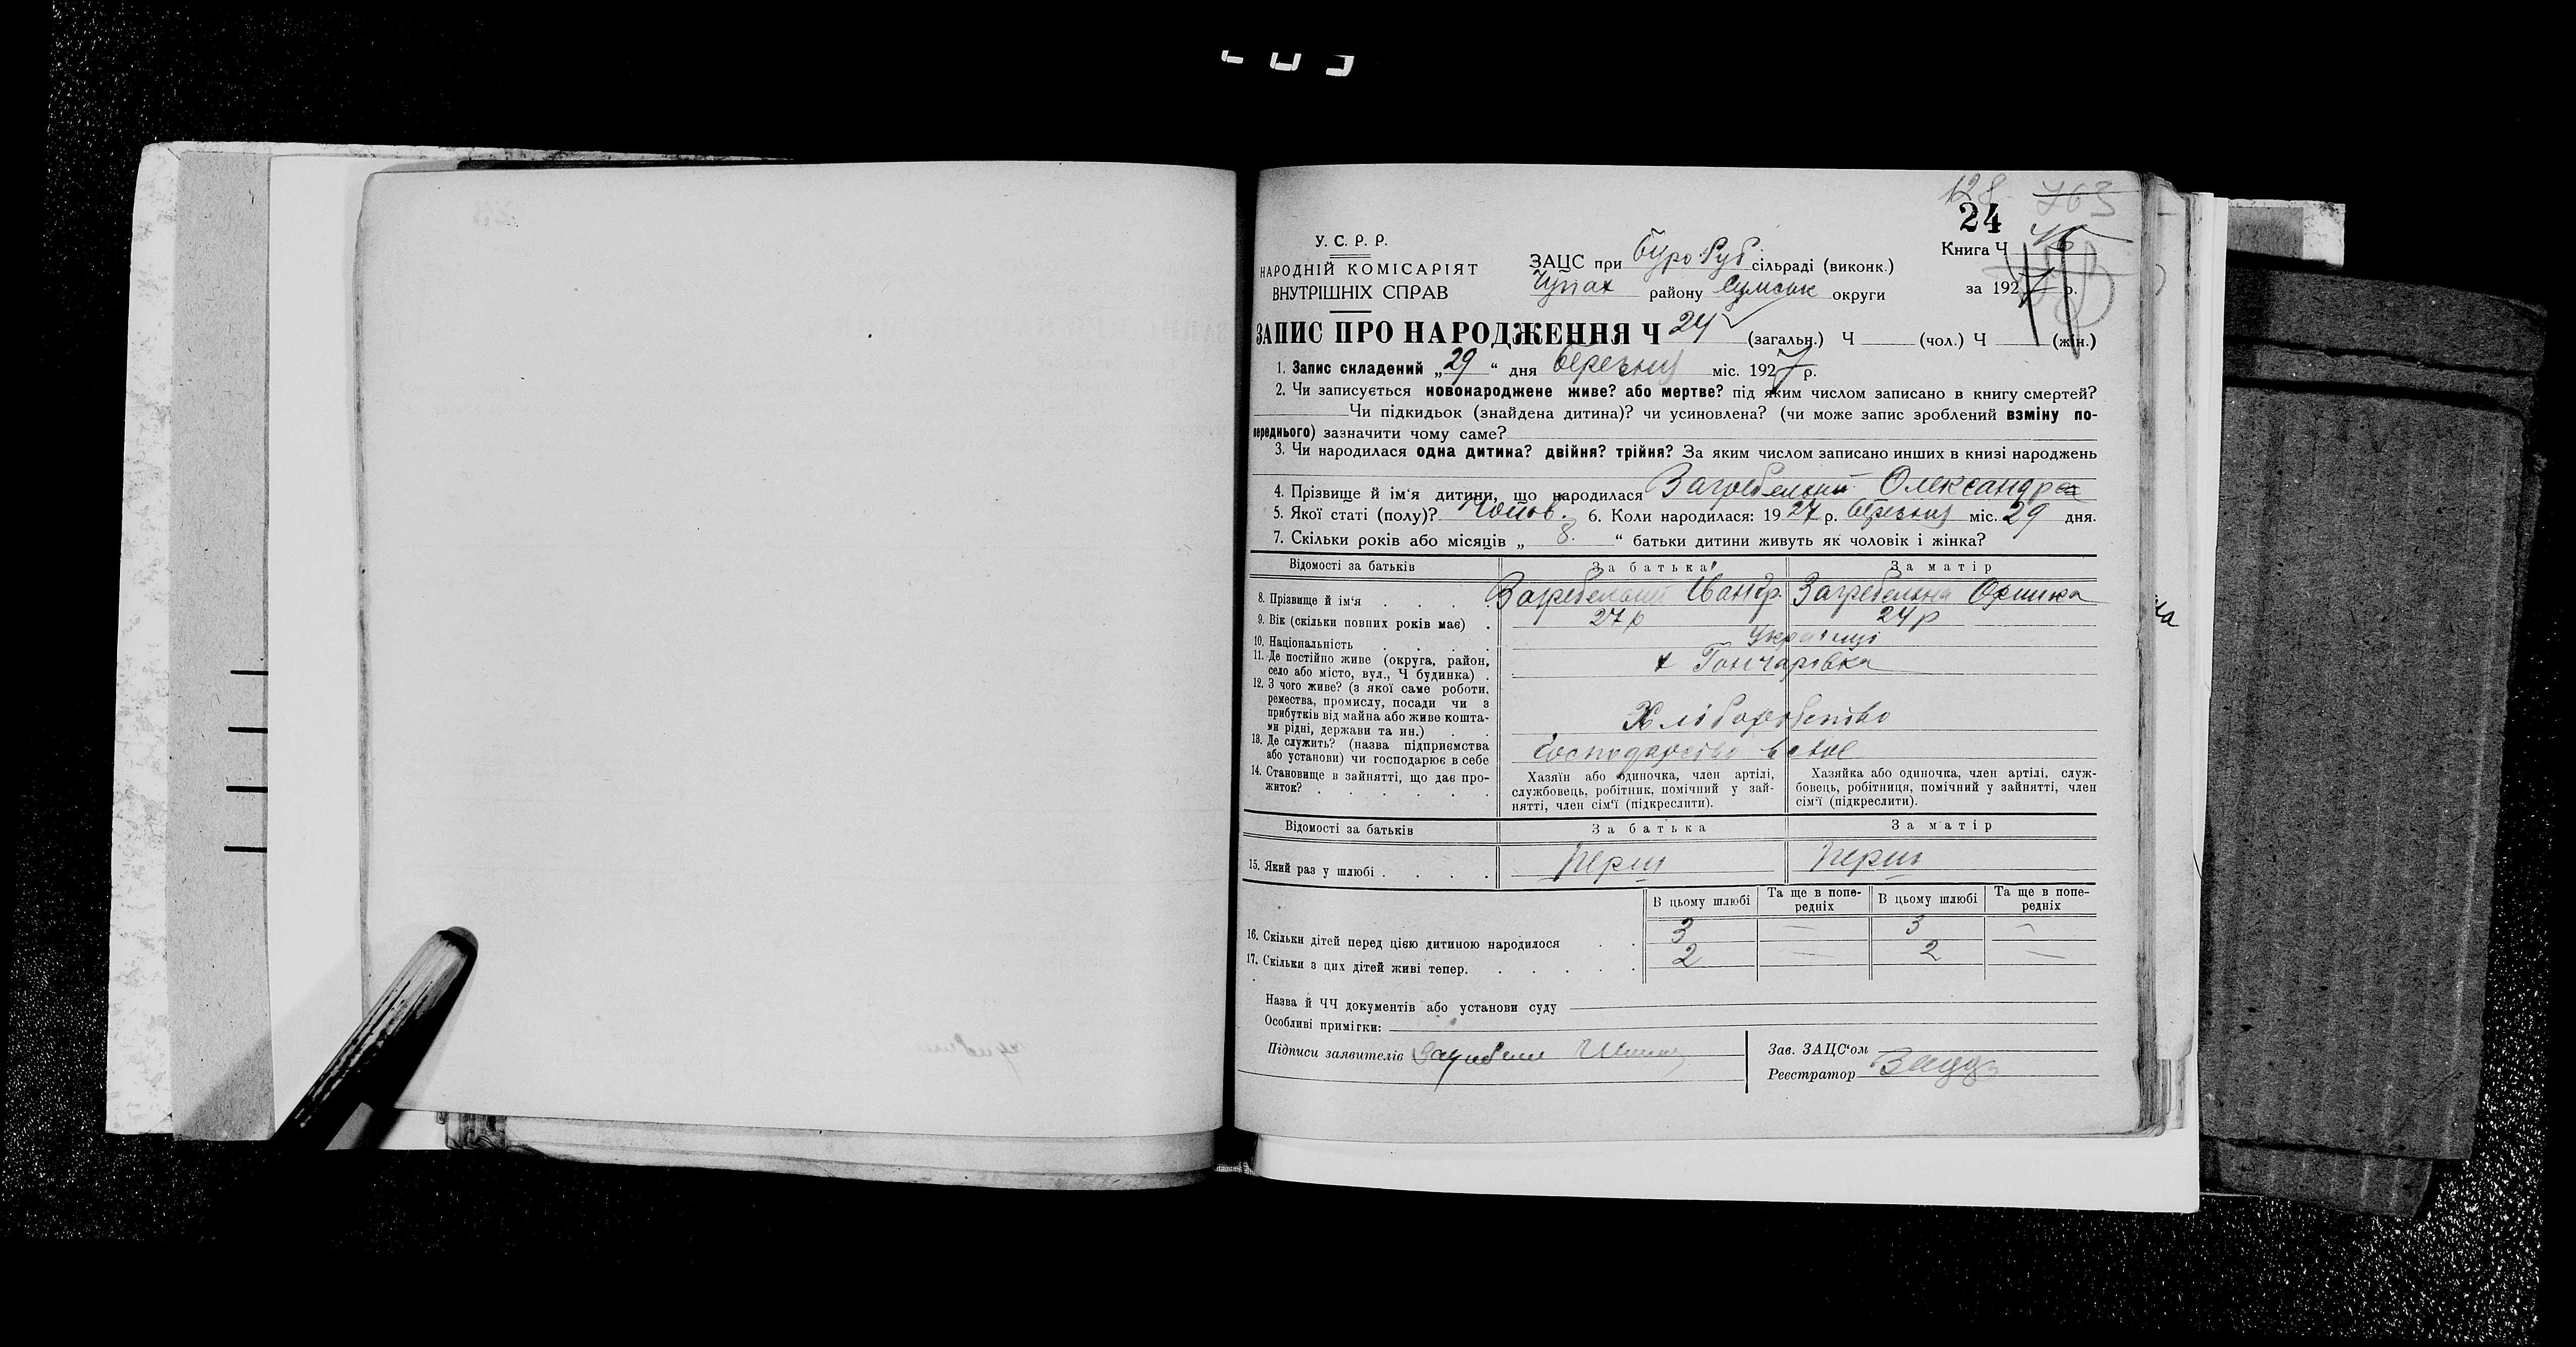 128 763
24
У. С. Р. Р.
НАРОДНІЙ КОМІСАРІЯТ
ВНУТРІШНІХ СПРАВ
ЗАЦС при Буро Руб сільраді (виконк.)
Чупах району Сумськ округи
Книга Ч
за 1927 р.
ЗАПИС ПРО НАРОДЖЕННЯ Ч 24 (загальн.) Ч (чол.) Ч (жін.)
1. Запис складений „29“ дня березня міс. 1927 р.
2. Чи записується новонароджене живе? або мертве? під яким числом записано в книгу смертей?
Чи підкидьок (знайдена дитина)? чи усиновлена? (чи може запис зроблений взміну по-
переднього) зазначити чому саме?
3. Чи народилася одна дитина? двійня? трійня? За яким числом записано инших в книзі народжень
4. Прізвище й ім‘я дитини, що народилася Загребельний Олександр
5. Якої статі (полу)? Чолов. 6. Коли народилася: 1927 р. березня міс. 29 дня.
7. Скільки років або місяців „ 8. “ батьки дитини живуть як чоловік і жінка?
Відомості за батьків За батька За матір
8. Прізвище й ім‘я . . . . Загребельний Іван Загребельна Оришка
9. Вік (скільки повних років має) . 27 р 24 р
10. Національність . . . . Українці
11. Де постійно живе (округа, район,
село або місто, вул., Ч будинка) . х Гончарівка
12. З чого живе? (з якої саме роботи,
ремества, промислу, посади чи з
прибутків від майна або живе кошта-
ми рідні, держави та ин.) . . Хліборобство
13. Де служить? (назва підприємства
або установи) чи господарює в себе Господарство
14. Становище в зайнятті, що дає про-
житок? . . . . . .
Хазяїн або одиночка, член артілі,
службовець, робітник, помічний у зай-
нятті, член сім‘ї (підкреслити).
Хазяйка або одиночка, член артілі, служ-
бовець, робітниця, помічний у зайнятті, член
сім‘ї (підкреслити).
Відомості за батьків За батька За матір
15. Який раз у шлюбі . . . . Перш Перш
В цьому шлюбі Та ще в попе-
редніх В цьому шлюбі Та ще в попе-
редніх
16. Скільки дітей перед цією дитиною народилося . . 3 — 3 —
17. Скільки з цих дітей живі тепер. . . . . . . 2 — 2 —
Назва й ЧЧ документів або установи суду
Особливі примітки:
Підписи заявителів
Зав. ЗАЦС‘ом
Реєстратор